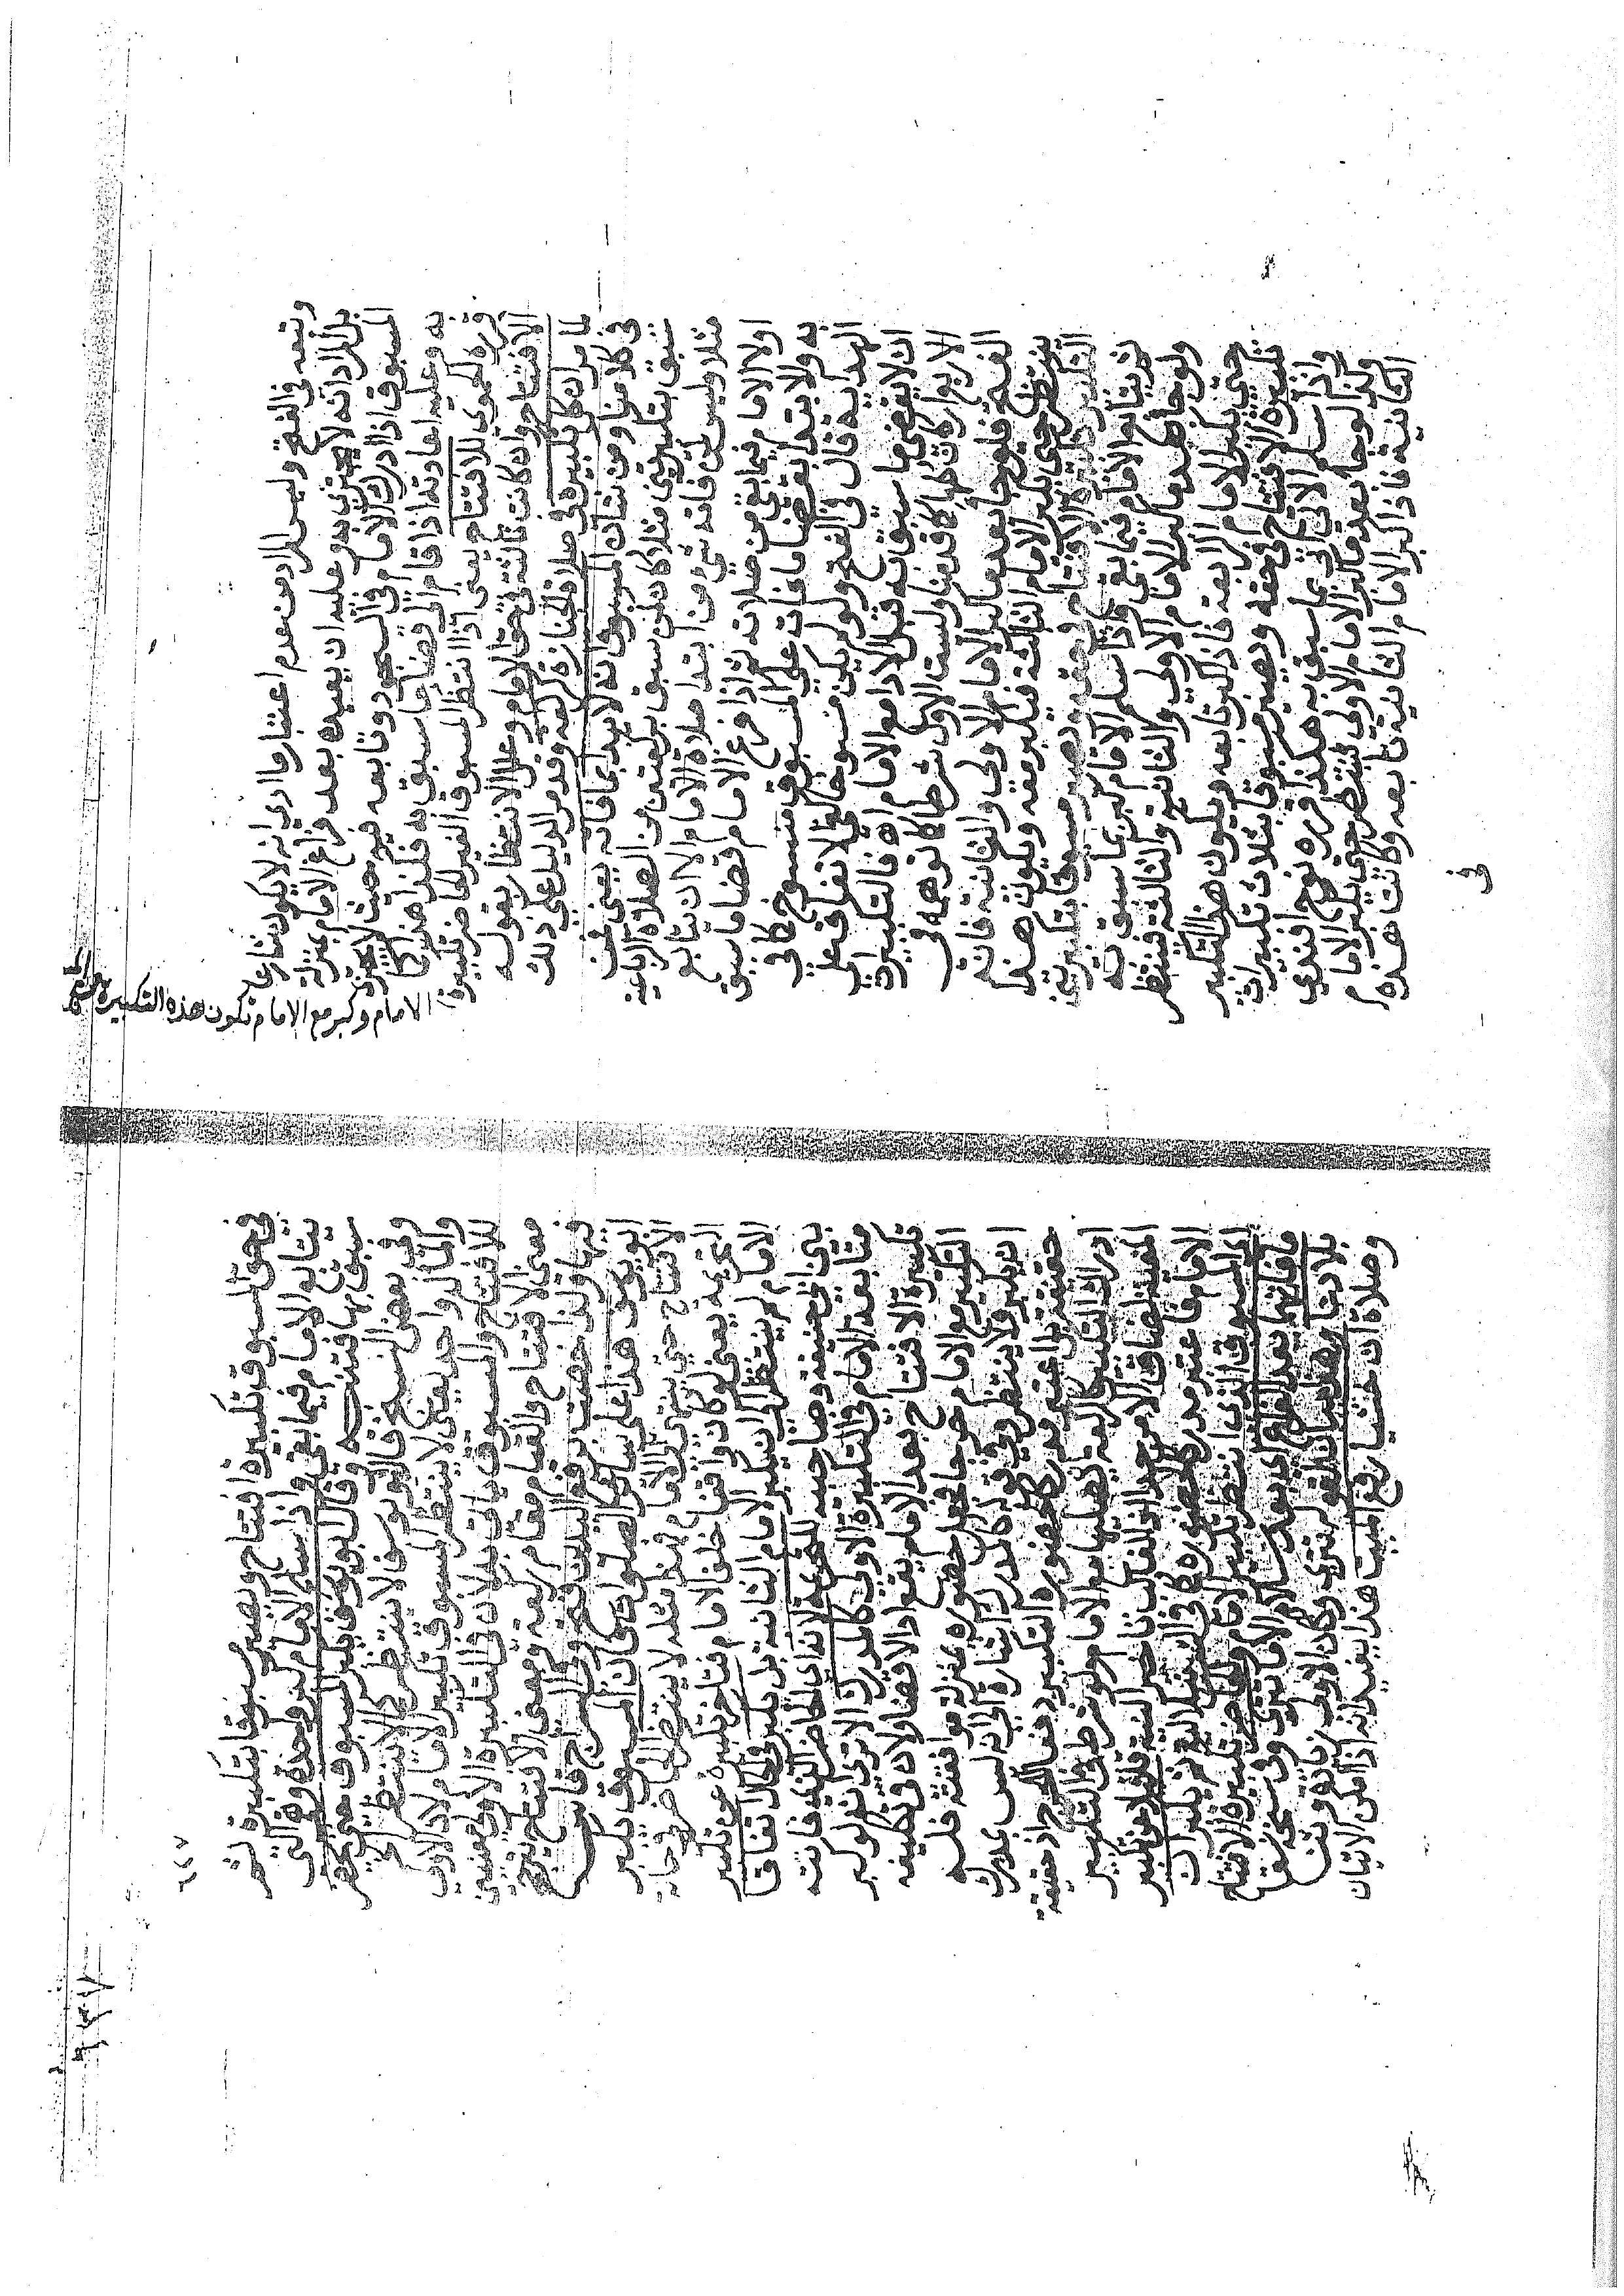 وتبعه في الفتح وليس المراد من عدم اعتبار ما ادي انه لا يكون شارعا
بل المراد انه لا يجتزئ به وعليه ان يعيده بعد فراغ الامام بمنزلة
المسبوق اذا ادرك الامام في السجود وتابعه فيه حيث لا يجتزئ
به وعليه اعادته اذا قام الى قضا ما سبق به فكذا هذا كا
قرره الحموي للافتتاح يعني اذا انتظر المسبوق الغير الحاضر تكبيرة
الامام وكبر مع الامام تكون هذه التكبيرة
الافتتاح وان كانت ثالثة في حق الامام وعلل الانتظار بقوله
لما مر ان كل تكبيرة في صلاة الجنازة كركعة وقد مر الدليل على ذلك
في كلامنا ومن شان المسبوق انه لا يبدأ بما فاته يعني من
سبق بتكبيرتين مثلا كان كمن سبق بركعتين من الصلاة الرباعية
مثلا وليس لمن فاته شي من ابتدا صلاة الامام الا ان يتابع
اولا الامام فيما بقي من صلاته ثم اذا فرغ الامام قضا ما سبق
به ولا يبتدا بقضا ما فاته على المسبوق منسوخ كا في
الهداية قال في الفتح ولو لم يكن منسوخا كفى الاتفاق على
ان لا يقضي ما سبق به قبل الاداء مع الامام اه فالتكبيرات
الاربع اركان كلها كا قدمنا وليست الاولى شرطا كا توهمه في
الفتح فلو جا بعد ما كبر الامام الاولى والثانية فانه
ينتظر حتى يكبر الامام الثالثة فيكبر معه ويكون هذا
التكبير تكبيرة الافتتاح في حقه ويصير مسبوقا بتكبيرتين
ثم يتابع الامام فيما بقي واذا سلم الامام كبر بما سبق به
ولو جا بعد ما كبر الامام الاولى والثانية والثالثة فينتظر
حتى يكبر الامام الرابعة فاذ كبر تابعه ويكون هذا التكبير
تكبيرة الافتتاح في حقه ويصير مسبوقا بثلاث تكبيرات
واذا سلم الامام اتى بما سبق به هكذا قرره نوح افندي
وكذا لو جا بعد ما كبر الامام الاولى ينتظر حتى يكبر الامام
الثانية فاذا كبر الامام الثانية تابعه وكانت هذه
في
في حق المسبوق تكبيرة افتتاح ويصير مسبوقا بتكبيرة ثم
يتابع الامام فيما بقي واذا سلم الامام كبر واحدة وهي التي
سبق بها وقال ابو يوسف يكبر المسبوق حين يحضر
وفي بعض النسخ وقال ابو يوسف لا ينتظر كا لا ينتظر
واتفاقا لو جا بعد يعني لا ينتظر المسبوق تكبير الامام لان الاولى
للافتتاح والمسبوق ياتي به لان في التكبيرة الاولى معنيين
معنى الافتتاح والقيام مقام ركعة ومعنى الافتتاح يترجح
فيها ولذا خصت برفع اليدين فتح وفي السراج قاس
ابو يوسف هذا على سائر الصلوات في ان المسبوق يكبر
الافتتاح حين ينتهي الى الامام فهذا مثله لا ينتظر الحاضر في حال
التحريمة يعني لو كان واقفا خلف الامام فتاخر تكبيره عن تكبير
الامام لم ينتظر اي ان يكبر الامام الثانية بل يكبر في الحال اتفاقا
بين ابي حنيفة وصاحبيه للتحريمة لانه اي الحاضر انية فاتته
متابعة الامام في التكبيرة الاولى كالمدرك الا ترى انه لو كبر
تكبيرة الافتتاح بعد الامام يقع ادا لا قضا ولان في تكليفه
التكبير مع الامام حرجا فجعل حضوره بمنزلة موافقته فله
ان يكبر ولا ينتظر وفي قوله كالمدرك اشارة الى انه ليس بمدرك
حقيقة بل اعتبر مدركا لحضوره التكبير دفعا للحرج اذ حقيقة
ادراك التكبير كالركعة بفعلها مع الامام ولو شرط في التكبير
المعية لضاق الامر جدا اذ الغالب تاخر النية قليلا عن تكبير
الامام فاعتبر مدركا لحضوره كا في النهر ثم يكبران
اي المسبوق الذي انتظر تكبير الامام والحاضر تكبيرة الافتتاح
ما فاتهما بعد الفراغ اي بعد سلام الامام وفي نسخة نسقا
بلا دعا وهذا بيان لقوله تترى وكان الاولى زيادة وتثنى
وصلاة ان خشيا رفع الميت هذا يفيد انه اذا امكن الاتيان